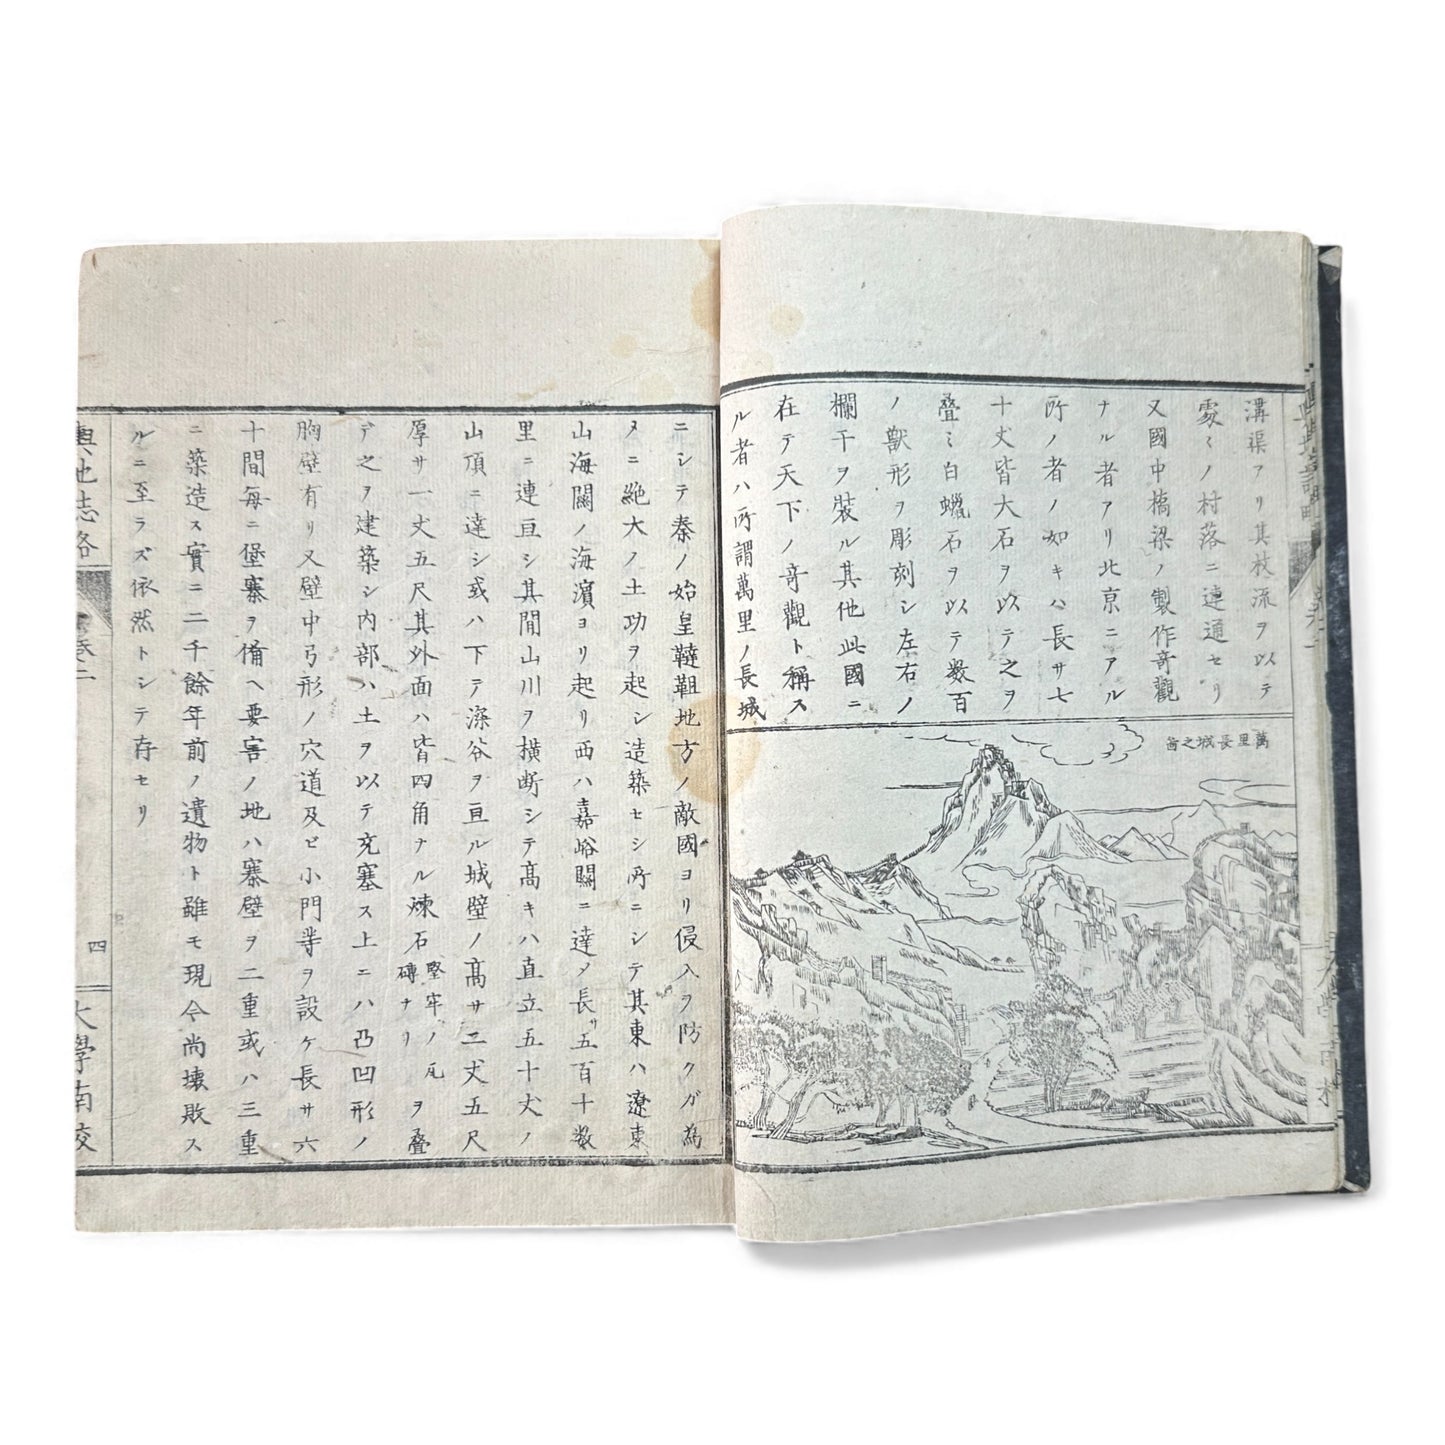 溝渠アリ其枝流ヲ以テ
處々ノ村落ニ連通セリ
又國中橋梁ノ製作奇觀
ナル者アリ北京ニアル
所ノ者ノ如キハ長サ七
十丈皆大石ヲ以テ之ヲ
疊ミ白蠟石ヲ以テ数百
ノ獣形ヲ彫刻シ左右ノ
欄干ヲ装ル其他此國ニ
在テ天下ノ奇觀ト稱ス
ル者ハ所謂萬里ノ長城
萬里長城之啚
ニシテ秦ノ始皇韃靼地方ノ敵國ヨリ侵入ヲ防クガ為
メニ絶大ノ土功ヲ起シ造築セシ所ニシテ其東ハ遼東
山海關ノ海濵ヨリ起リ西ハ嘉峪關ニ達メ長サ五百十数
里ニ連亘シ其間山川ヲ横断シテ高キハ直立五十丈ノ
山頂ニ達シ或ハ下テ深谷ヲ亘ル城壁ノ高サ二丈五尺
厚サ一丈五尺其外面ハ皆四角ナル煉石堅牢ノ瓦磚ナリヲ疊
デ之ヲ建築シ内部ハ土ヲ以テ充塞ス上ニハ凸凹形ノ
胸壁有リ又壁中弓形ノ穴道及ビ小門等ヲ設ケ長サ六
十間毎ニ堡寨ヲ備ヘ要害ノ地ハ寨壁ヲ二重或ハ三重
ニ築造ス實ニ二千餘年前ノ遺物ト雖モ現今尚壊敗ス
ルニ至ラズ依然トシテ存セリ
輿地志略
巻二
四
大學南校